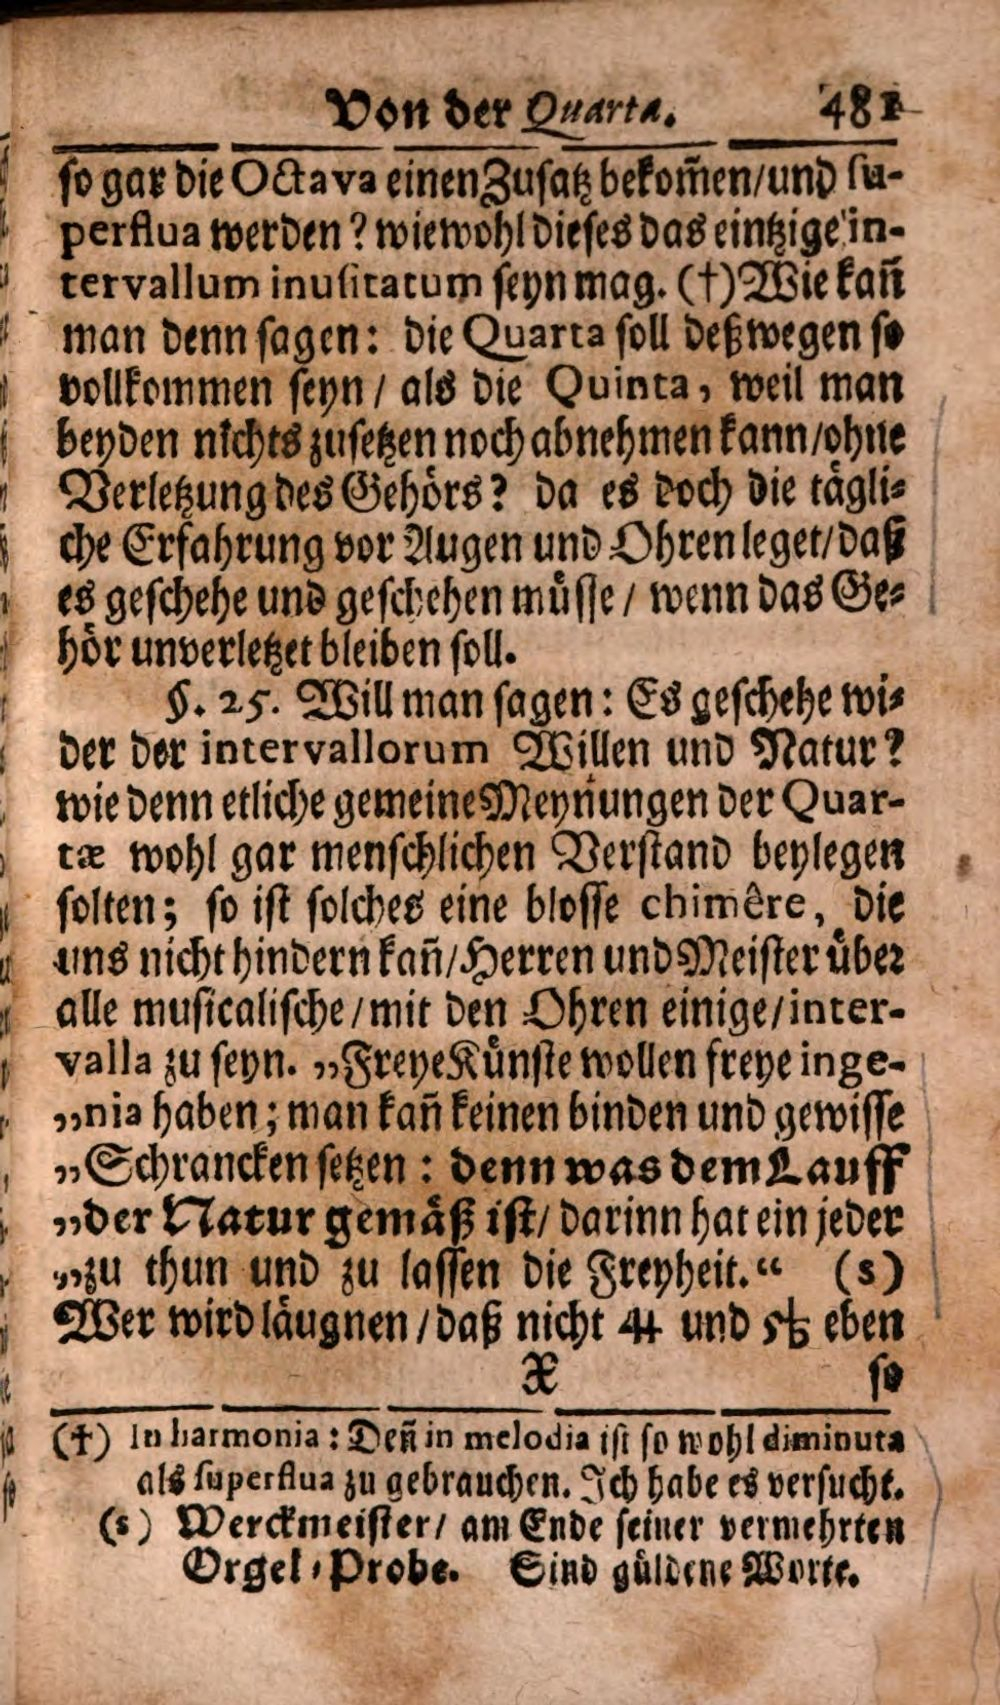 Von der Quarta. 481
so gar die Octava einen Zusatz bekom̃en/und su-
perflua werden? wiewohl dieses das eintzige in-
tervallum inusitatum seyn mag. (†) Wie kañ
man denn sagen: die Quarta soll deßwegen so
vollkommen seyn / als die Quinta, weil man
beyden nichts zusetzen noch abnehmen kann/ohne
Verletzung des Gehörs? da es doch die tägli-
che Erfahrung vor Augen und Ohren leget/daß
es geschehe und geschehen müsse / wenn das Ge-
hör unverletzet bleiben soll.
§. 25. Will man sagen: Es geschehe wi-
der der intervallorum Willen und Natur?
wie denn etliche gemeine Meynungen der Quar-
tæ wohl gar menschlichen Verstand beylegen
solten; so ist solches eine blosse chimêre, die
uns nicht hindern kañ/Herren und Meister über
alle musicalische/mit den Ohren einige/inter-
valla zu seyn. „Freye Künste wollen freye inge-
„nia haben; man kañ keinen binden und gewisse
„Schrancken setzen: denn was dem Lauff
„der Natur gemäß ist/ darinn hat ein jeder
„zu thun und zu lassen die Freyheit.“ (s)
Wer wird läugnen/daß nicht 4♯ und 5♭ eben
X so
(†) In harmonia: Deñ in melodia ist so wohl diminuta
als superflua zu gebrauchen. Ich habe es versucht.
(s) Werckmeister/ am Ende seiner vermehrten
Orgel-Probe. Sind güldene Worte.